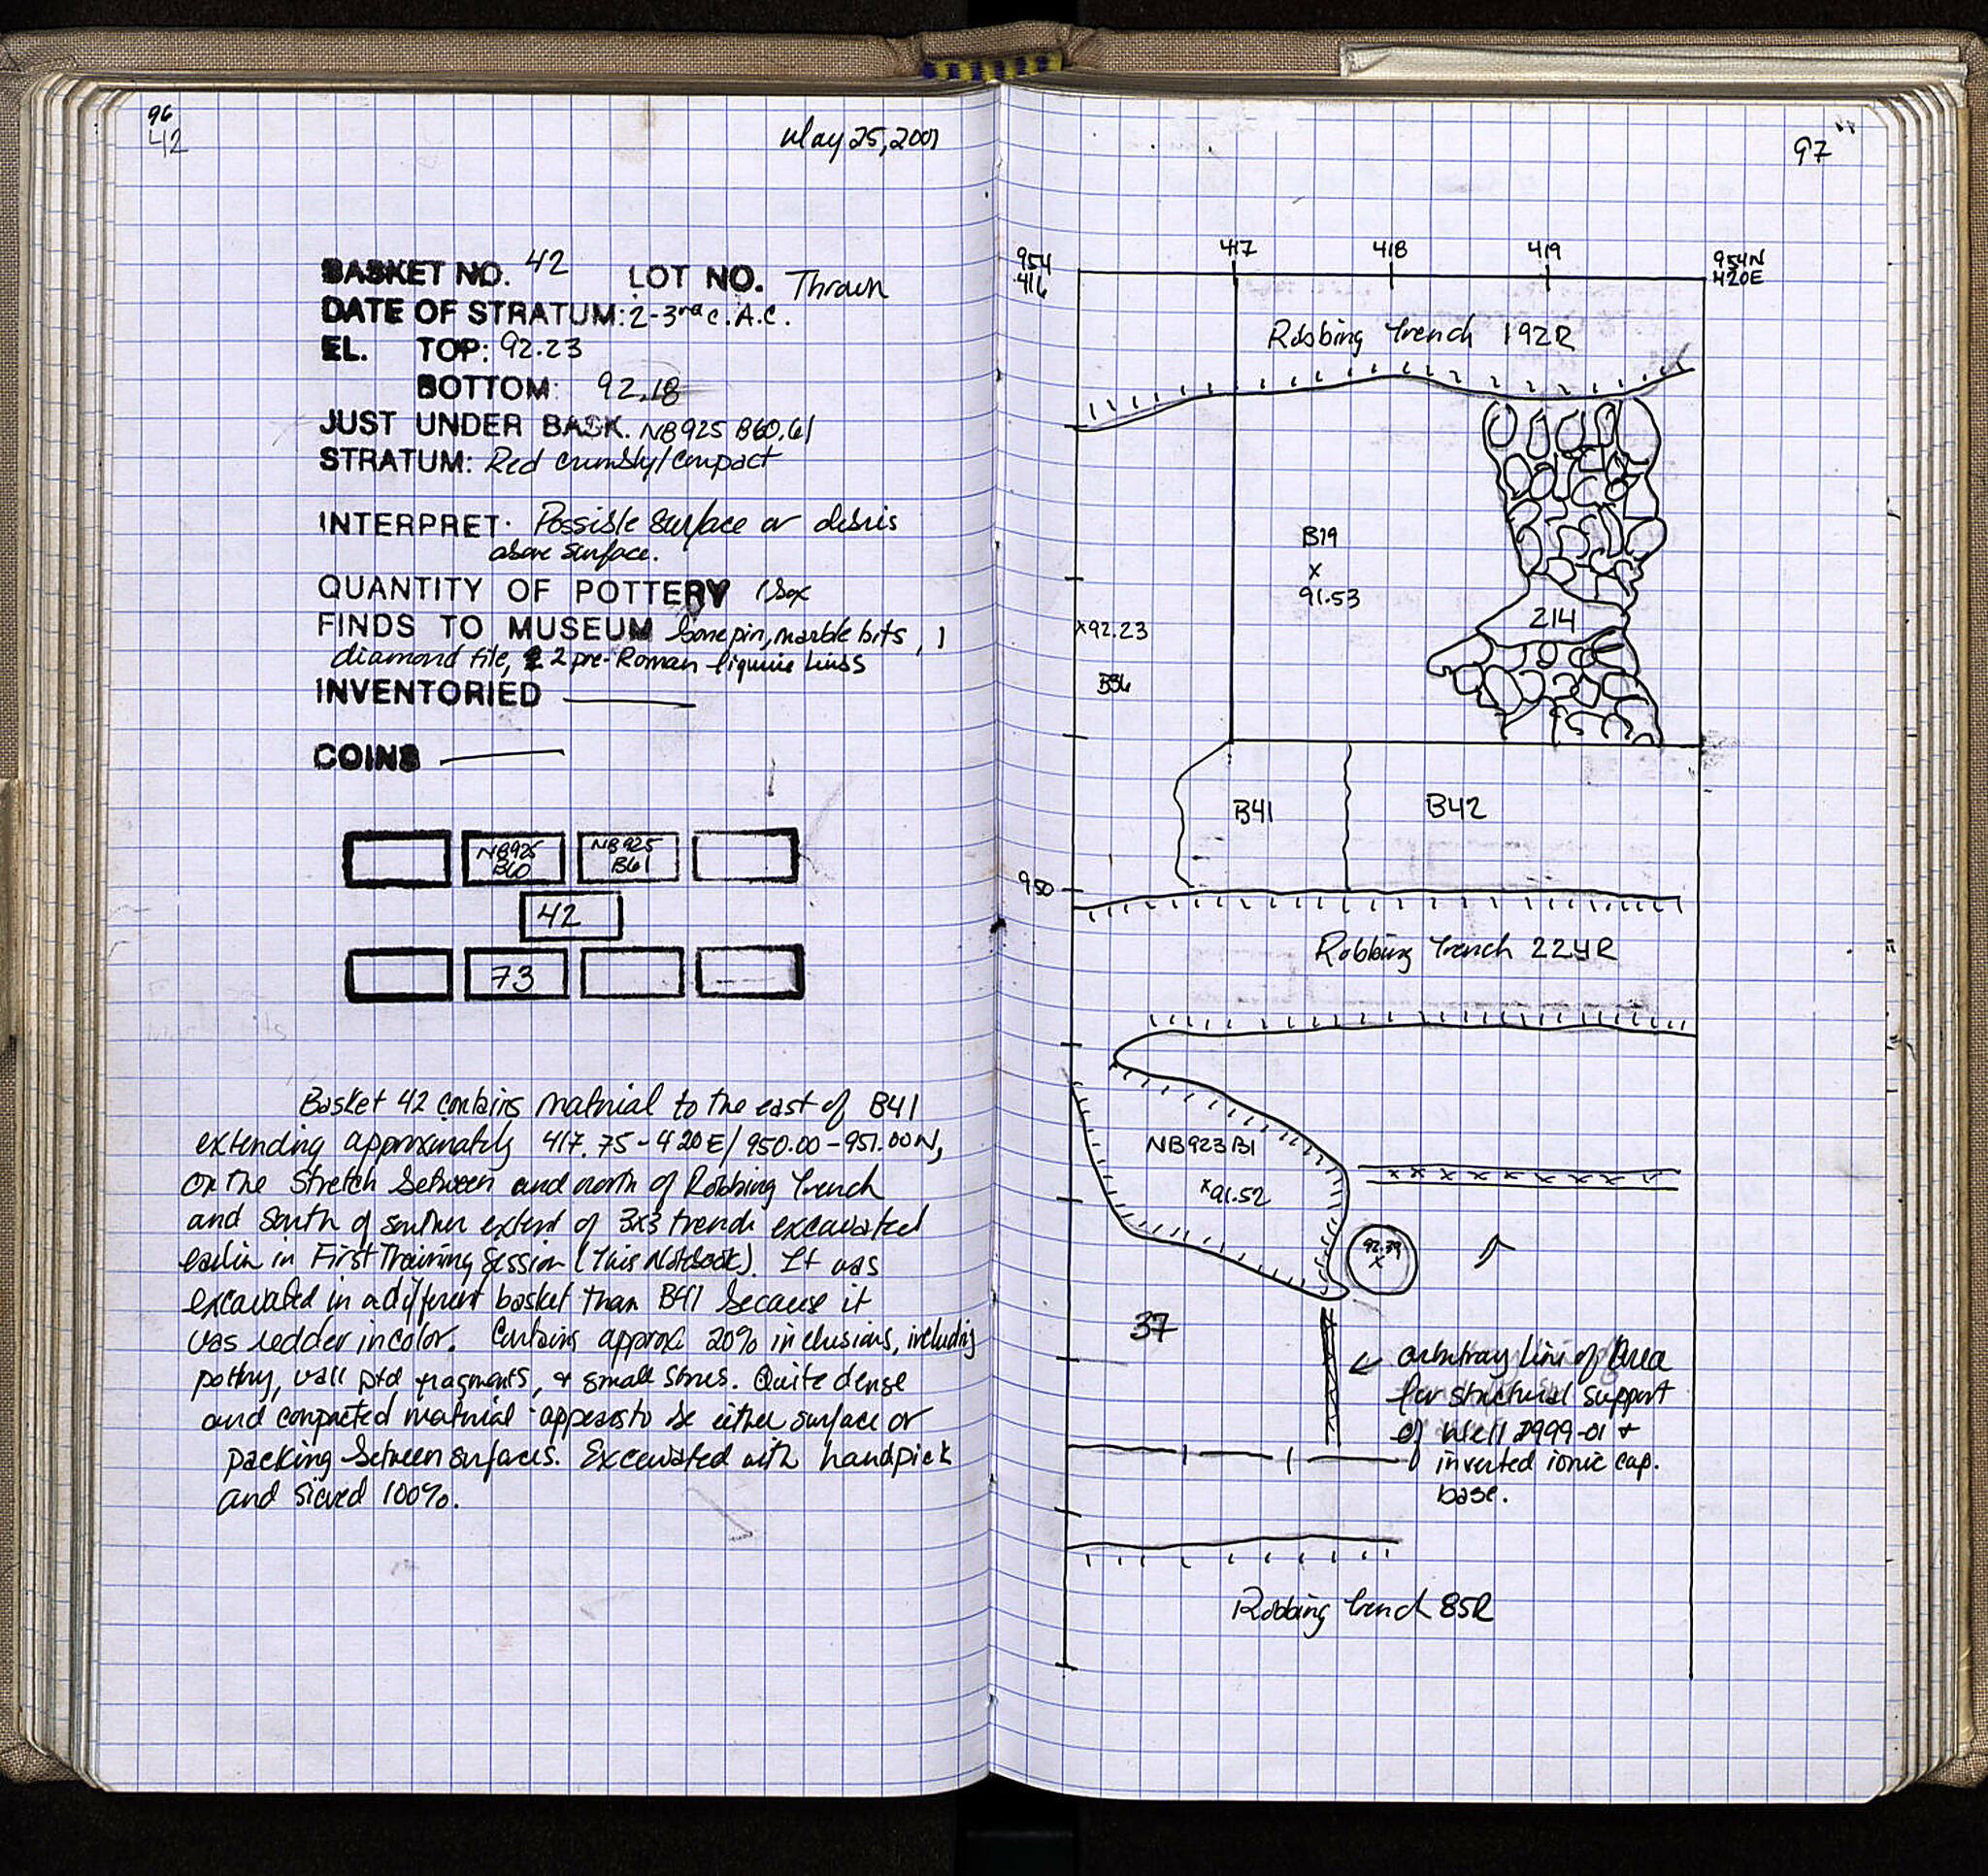 96
42
May 25, 2001
BASKET NO. 42 LOT NO. Thrown
DATE OF STRATUM: 2-3rd c. A.C.
EL. TOP: 92.23
BOTTOM: 92.18
JUST UNDER BASK. NB925 B60,61
STRATUM: Red crumbly/compact
INTERPRET. Possible surface or debris
above surface.
QUANTITY OF POTTERY 1 box
FINDS TO MUSEUM bone pin, marble bits, 1
diamond tile, 2 pre-Roman figurine
INVENTORIED —
COINS —
NB925
B60
NB925
B61
42
73
Basket 42 contains material to the east of B41
extending approximately 417.75-420E/950.00-951.00N,
or the stretch between and north of Robbing Trench
and south of southern extent of 3x3 trench excavated
earlier in First Training Session (This Notebook). It was
excavated in a different basket than B41 because it
was redder in color. Contains approx. 20% inclusions, including
pottery, wall ptd fragments, & small stones. Quite dense
and compacted material - appears to be either surface or
packing between surfaces. Excavated with handpick
and sieved 100%.
97
954
416
417
418
419
954N
420E
Robbing Trench 192R
B19
x
91.53
x92.23
B36
214
B41
B42
950
Robbing Trench 224R
NB923 B1
x91.52
92.39
x
37
arbitrary line of Area
for structural support
of Well 1999-01 +
inverted ionic cap.
base.
Robbing Trench 85R